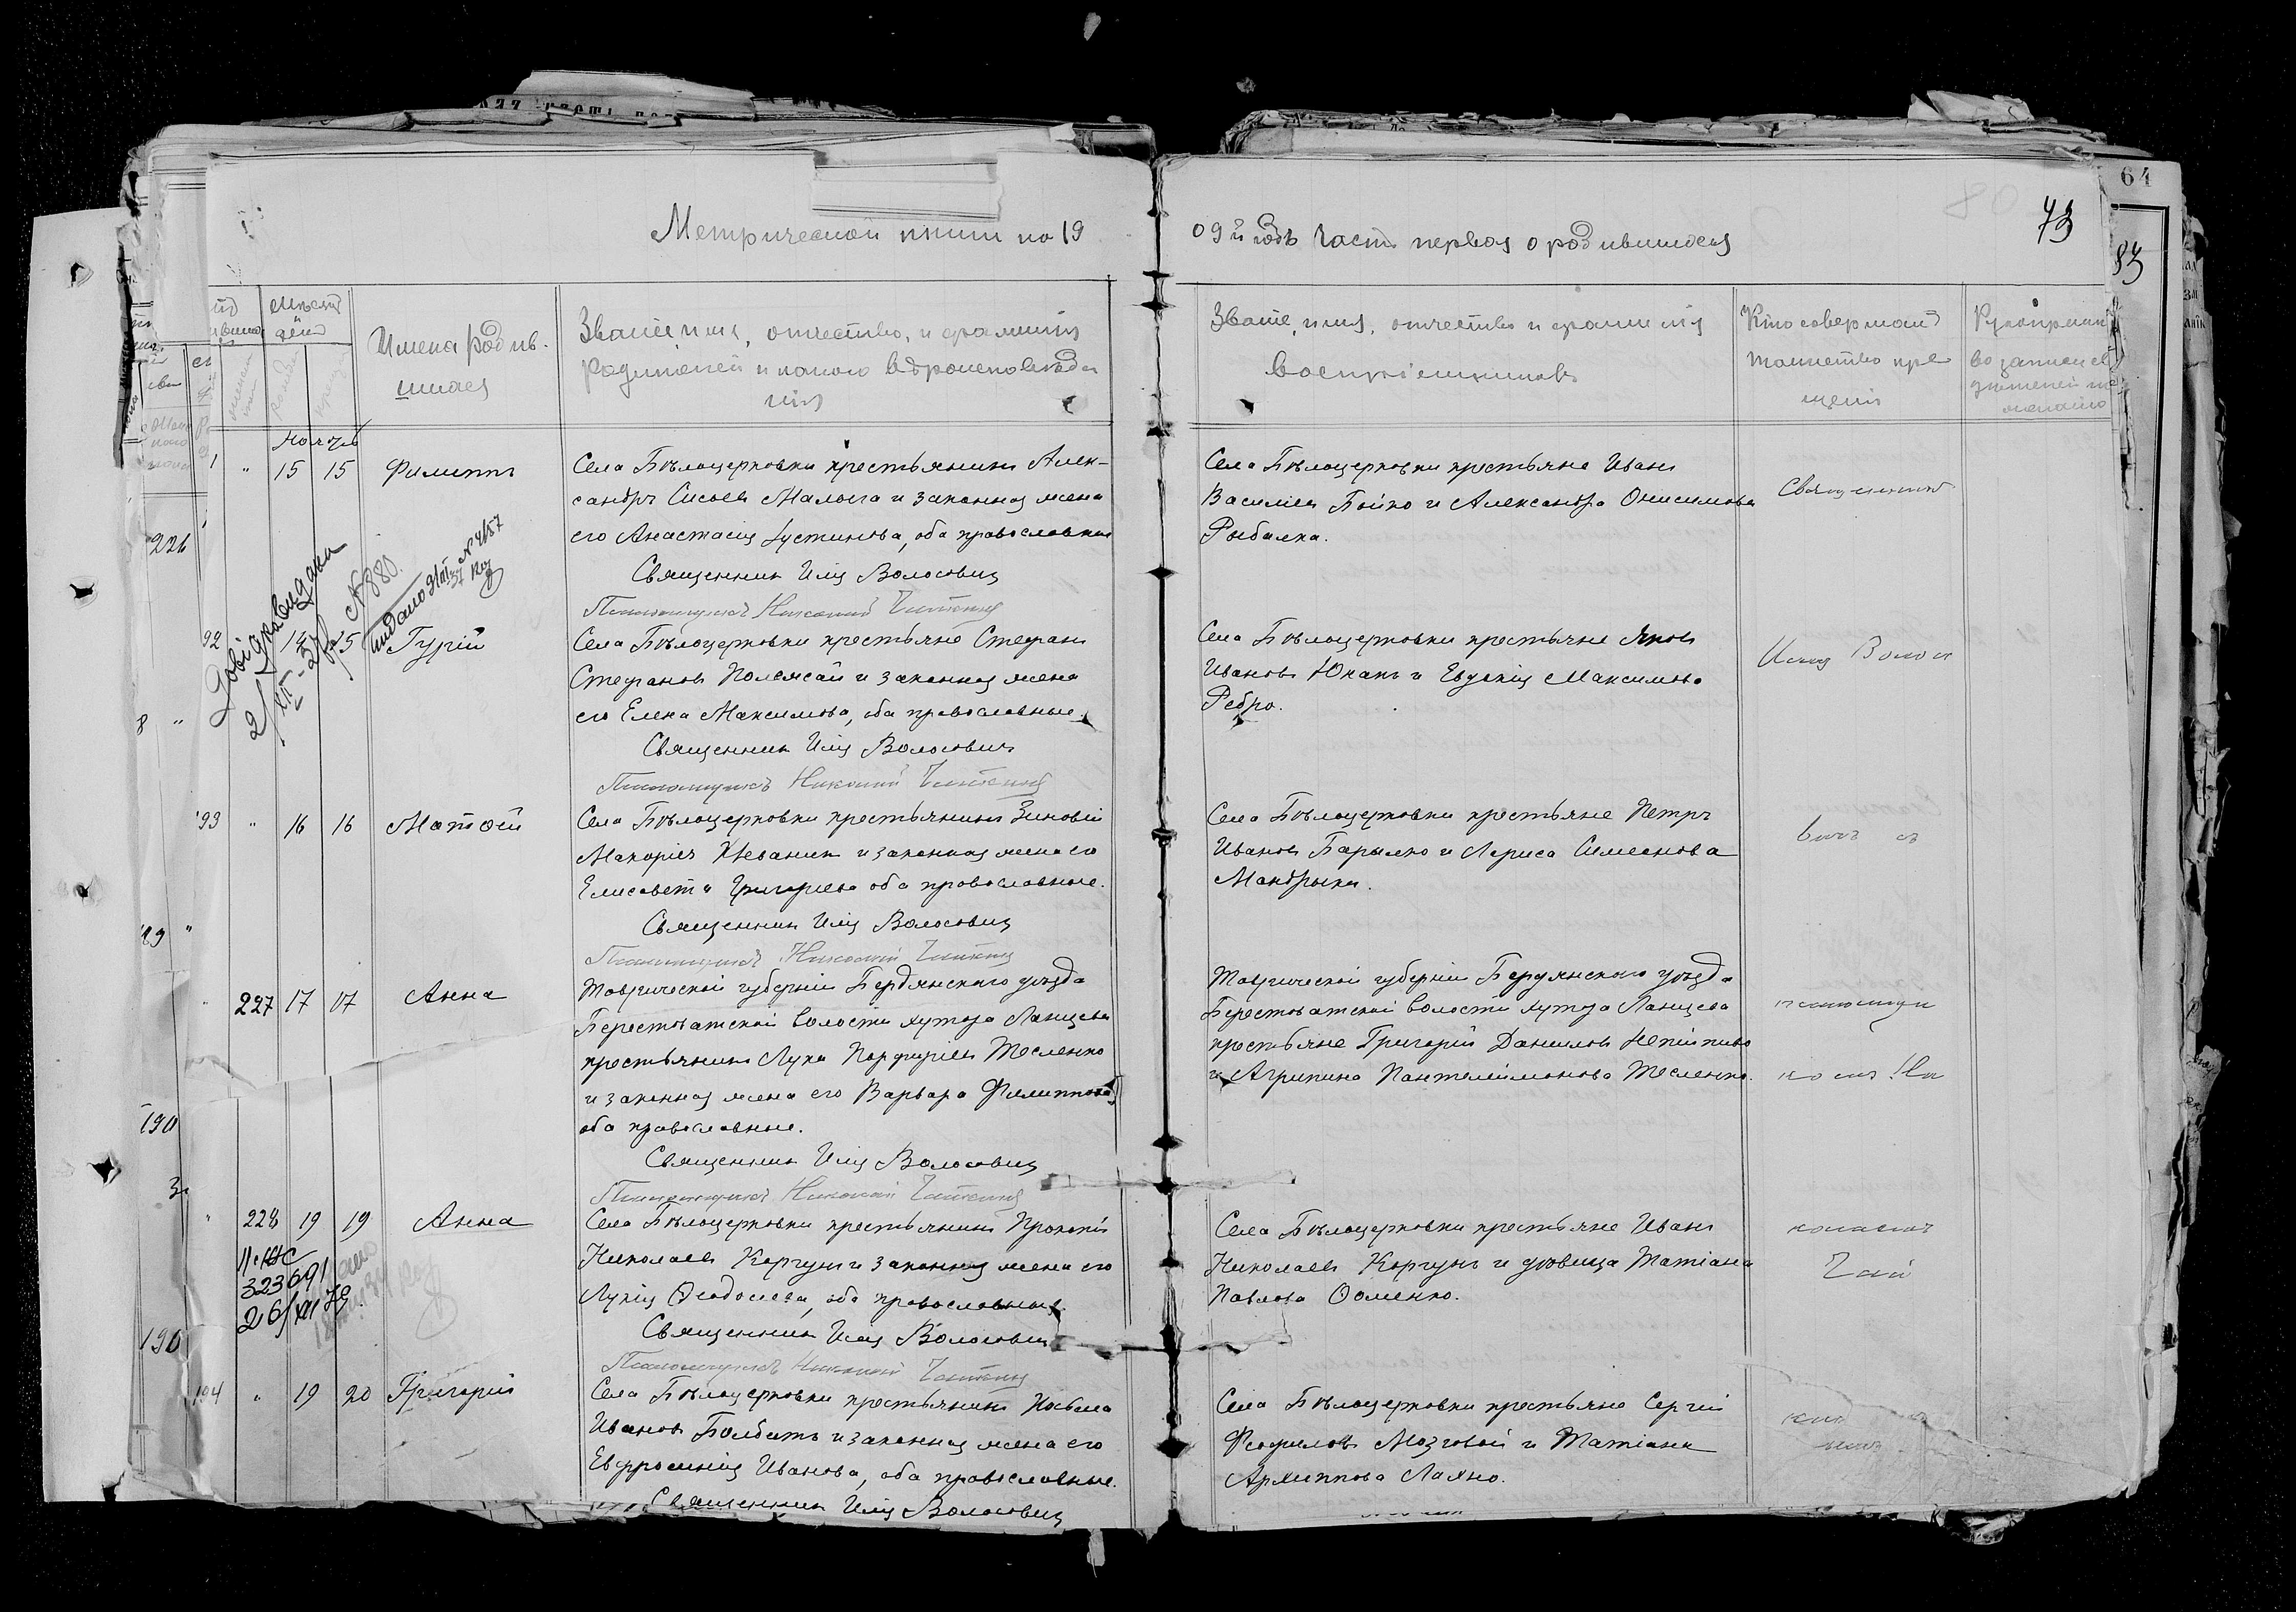 64
73
83
Метрической книги на 19
09й годъ Часть первая о родившихся
Мѣсяцъ
день
Имена родив-
шихся
Званіе, имя, отчество, и фамилія
родителей и какого вѣроисповѣда
нія
Званіе, имя, отчество и фамилія
воспріемниковъ
Кто совершалъ
таинство кре
щенія
Рукоприклад
во записи св
Ноябрь
1 " 15 15 Филиппъ
Села Бѣлоцерковки крестьянинъ Алек-
сандръ Сисоевъ Малыга и законная жена
его Анастасія Іустинова, оба православные
Священникъ Илія Волосовичъ
Псаломщикъ Николай
Села Бѣлоцерковки крестьяне Иванъ
Василіевъ Бойко и Александра Онисимова
Рыбалка.
Священникъ
226
Довідка видана
2/XII-37р. № 880.
видано 31/III 37 № 4157
92 14 15 Гурій
Села Бѣлоцерковки крестьяне Стефанъ
Стефановъ Полежай и законная жена
его Елена Максимова, оба православные.
Священникъ Илія Волосовичъ
Псаломщикъ Николай
Села Бѣлоцерковки крестьяне Яковъ
Ивановъ Юнакъ и Евдокія Максимова
Ребро.
Илія Волос
8 "
93 " 16 16 Матѳей
Села Бѣлоцерковки крестьянинъ Зиновій
Макаріевъ Жеванин и законная жена его
Елисавета Григорьева оба православные.
Священникъ Илія Волосовичъ
Псаломщикъ Николай
Села Бѣлоцерковки крестьяне Петръ
Ивановъ Барылко и Лариса Симеонова
Мандрыка.
вичъ съ
" 227 17 17 Анна
Таврической губерніи Бердянскаго уѣзда
Берестоватской волости хутора Ланцева
крестьянинъ Лука Порфиріевъ Тесленко
и законная жена его Варвара Филиппова,
оба православные.
Священникъ Илія Волосовичъ
Псаломщикъ Николай
Таврической губерніи Бердянскаго уѣзда
Берестоватской волости хутора Ланцева
крестьяне Григорій Даниловъ Непийпиво
и Агрипина Пантелеймонова Тесленко.
псаломщи
комъ Ни
190
" 228 19 19 Анна
II-КЕ
323691
26/XII 79
Села Бѣлоцерковки крестьянинъ Прокопій
Николаевъ Коргунъ и законная жена его
Лукія Ѳеодосіева, оба православные.
Священникъ Илія Волосовичъ
Псаломщикъ Николай
Села Бѣлоцерковки крестьяне Иванъ
Николаевъ Коргунъ и дѣвица Татіана
Павлова Ооменко.
колаемъ
190
194 " 19 20 Григорій
Села Бѣлоцерковки крестьянинъ Косьма
Ивановъ Болбатъ и законная жена его
Евфросинія Иванова, оба православные.
Священникъ Илія Волосовичъ
Села Бѣлоцерковки крестьяне Сергій
Феофиловъ Мозговой и Татіана
Архиппова Лахно.